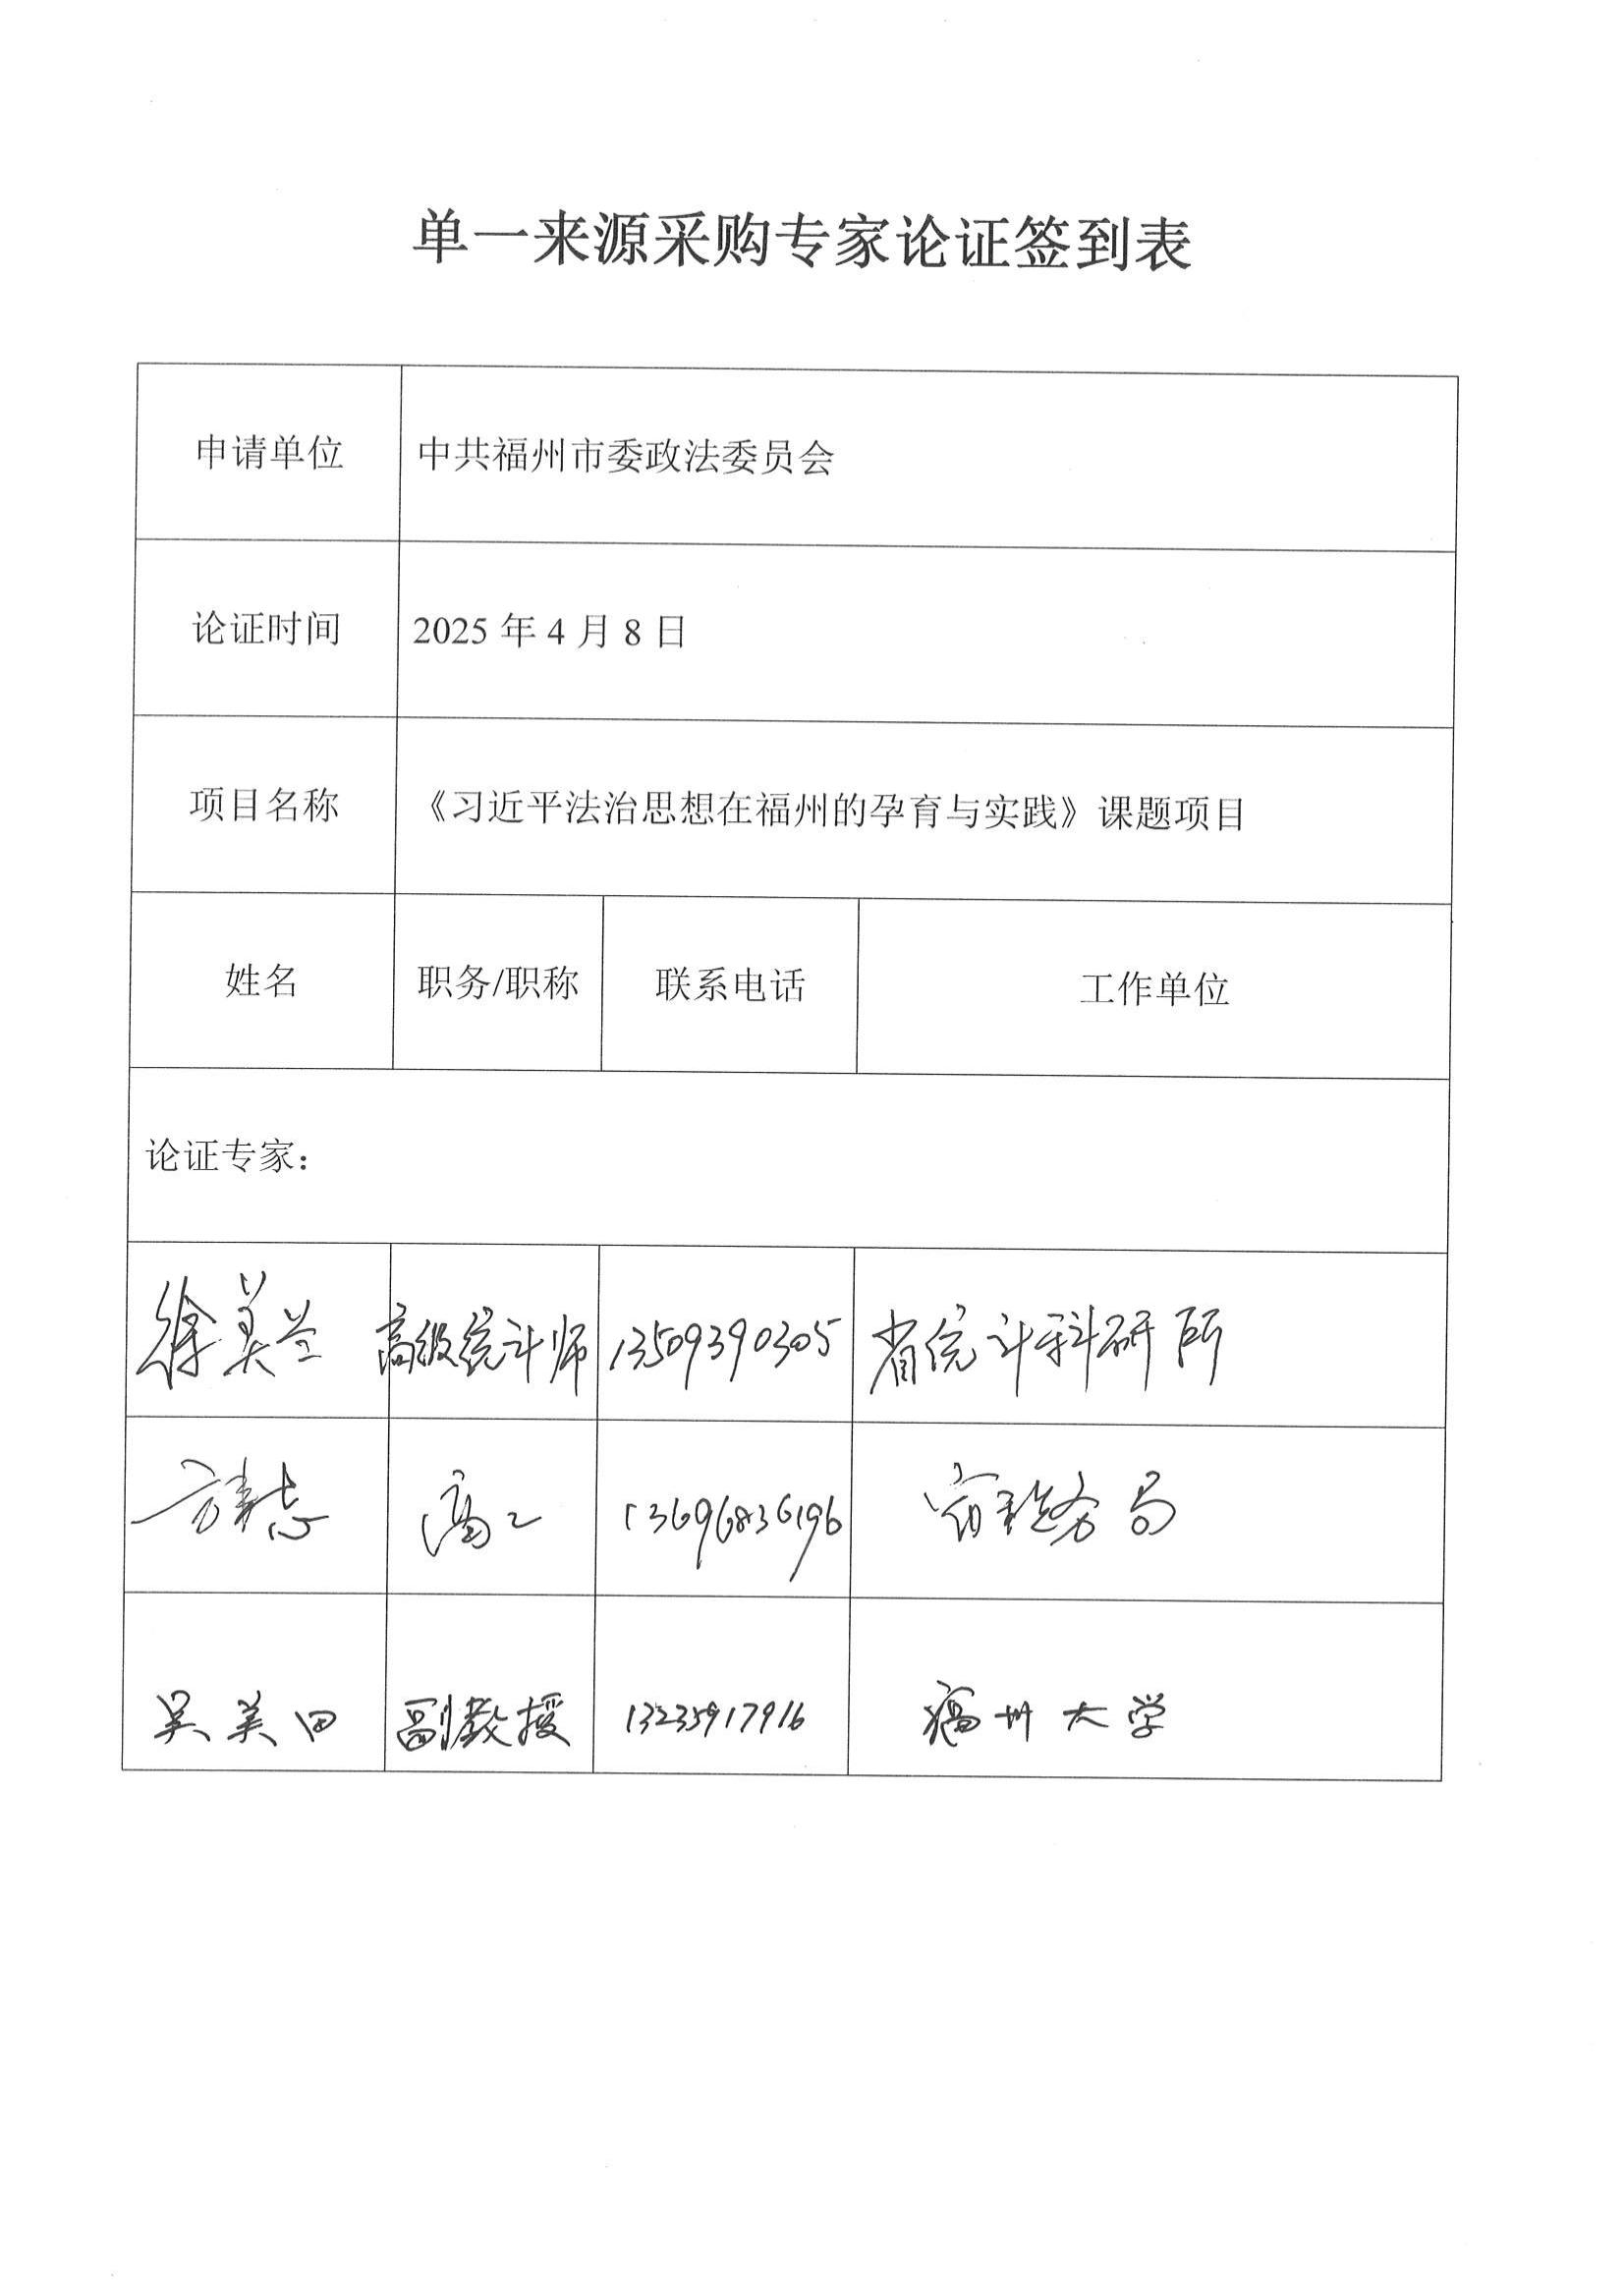 单一来源采购专家论证签到表
申请单位 中共福州市委政法委员会
论证时间 2025 年 4 月 8 日
项目名称 《习近平法治思想在福州的孕育与实践》课题项目
姓名 职务/职称 联系电话 工作单位
论证专家：
徐美兰 高级统计师 13509390305 省统计科研所
高工 13696836196 省税务局
吴美田 副教授 13235917916 福州大学